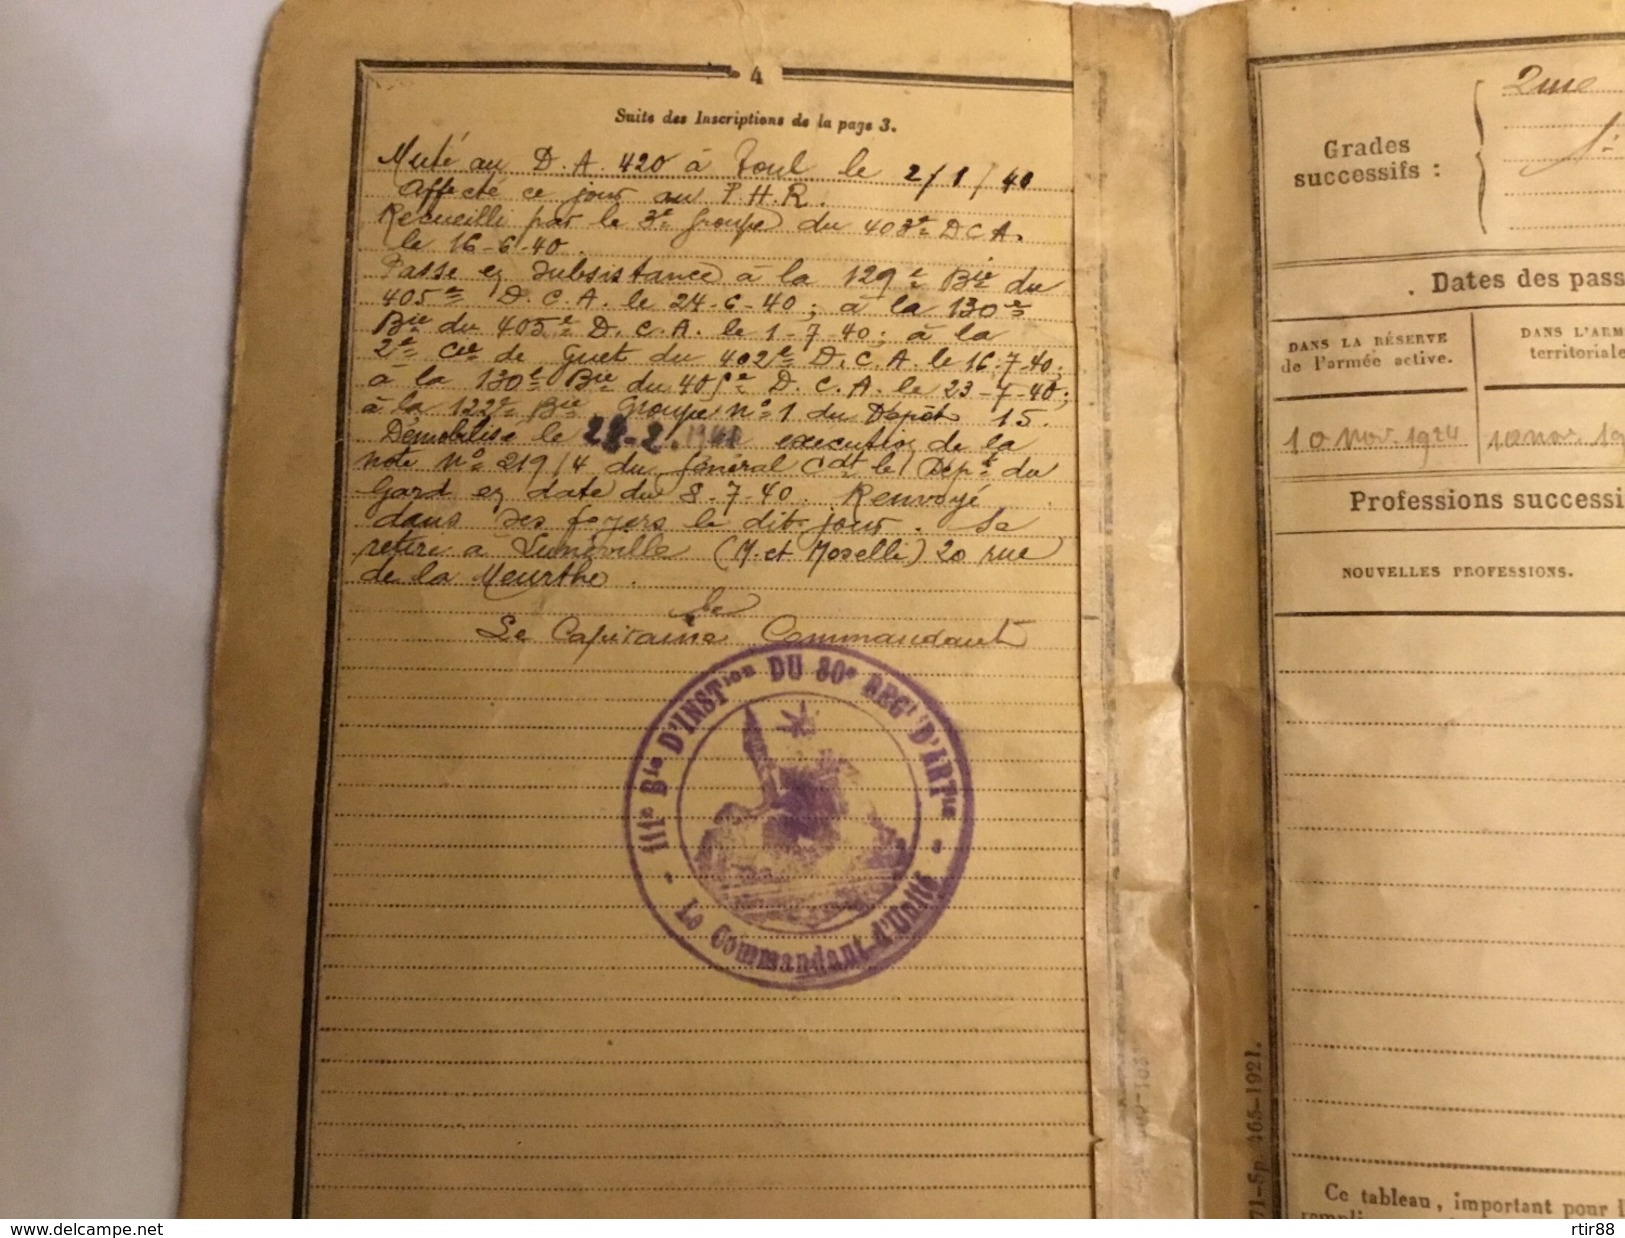 4
Suite des Inscriptions de la page 3.
Muté au D.A. 420 à Toul le 2/1/40
Affecté ce jour au P.H.R.
Recueilli par le 3e Groupe du 403e DCA.
le 16-6-40.
Passe en subsistance à la 129e Bie du
405e D.C.A. le 24-6-40; à la 130e
Bie du 405e D.C.A. le 1-7-40; à la
2e Cie de Guet du 402e D.C.A. le 16-7-40;
à la 130e Bie du 405e D.C.A. le 23-7-40;
à la 122e Bie Groupe n° 1 du Dépôt 15.
Démobilisé le 28-2. execution de la
note N° 219/4 du Général Cdt le Dépt du
Gard en date du 8-7-40. Renvoyé
dans ses foyers le dit jour. Se
retire à Lunéville (M. et Moselle) 20 rue
de la Meurthe.
Le Capitaine Commandant
111e Bie D'INSTion DU 80e REGt D'ARTie
Le Commandant d'Unité
Grades
successifs :
2me
Dates des pass
DANS LA RÉSERVE
de l'armée active.
DANS L'ARM
territoriale
10 nov. 1924
10 nov. 19
Professions successi
NOUVELLES PROFESSIONS.
Ce tableau, important pour l
71-Sp. 465-1921.
delcampe.net
rtir88